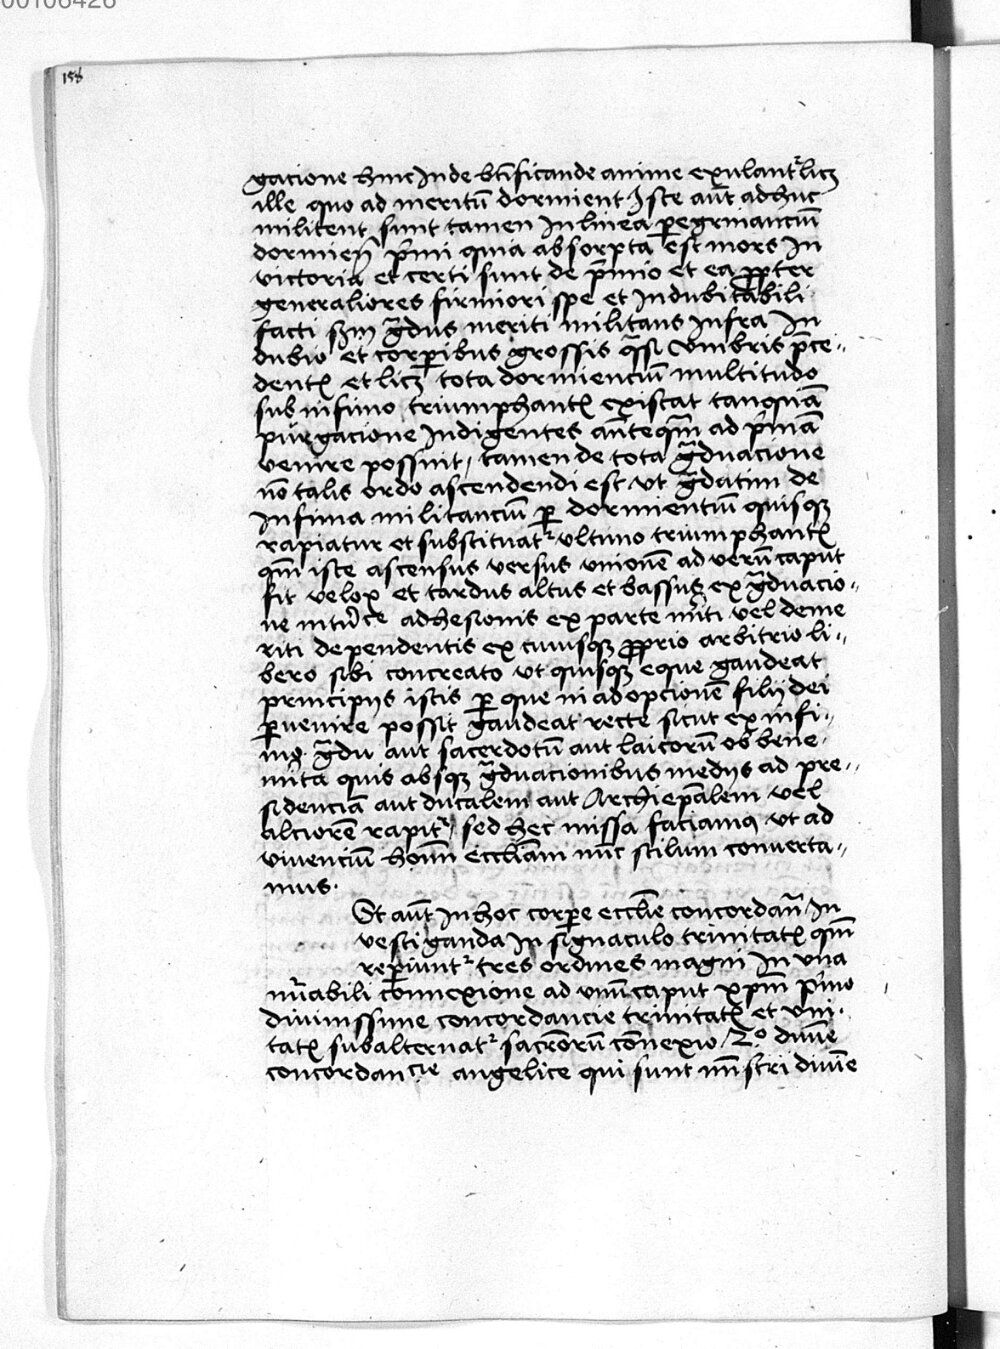 00106426
158
gacione hinc Inde btificande anime exulant licz
ille quo ad meritū dormient Iste aut adhuc
militent sunt tamen In linea peregrinanciū
dormien p̄mi quia absorpta est mors In
victoria et certi sunt de p̄mio et ea propter
generaliores firmiori spe et Indubitabili
facti scdm gdus meriti militans Infra In
dubio et corpibus grossis qsi vmbris p̄ce-
dent et licz tota dormienciū multitudo
sub infimo triumphant existat tanquā
purgacione Indigentes anteqm ad p̄miā
venire possint / tamen de tota gduacione
nō talis ordo ascendendi est vt gdatim de
Infima militanciū p dormientiū quisqz
rapiatur et substituat vltimo triumphant
qm iste ascensus versus vnionē ad verū caput
fit velox et tardus altus et bassus ex gduacio-
ne adhesionis ex parte mriti vel deme
riti dependentis ex cuiusqz proprio arbitrio li-
bero sibi concreato vt quisqz eque gaudeat
principijs istis p que in adopcionē filij dei
pvenire possit gaudeat recte sicut ex infi-
mo gdu aut sacerdotū aut laicorū ob bene-
mrita quis absqz gduacionibus medijs ad pre-
sidenciā aut ducalem aut Archiepalem vel
alciorē rapit / sed hec missa faciamus vt ad
viuenciū hoim eccliam nūc stilum conuerta-
mus.
St aut In hoc corpe ecclie concordan In
vestiganda In signaculo trinitat qm
repiunt tres ordines magni In vna
mrabili cōnnexione ad vnū caput xpm p̄mo
diuinissime concordancie trinitat et vni-
tat subalternat sacrorū cōnexio / 2o diuine
concordancie angelice qui sunt mnstri diuine